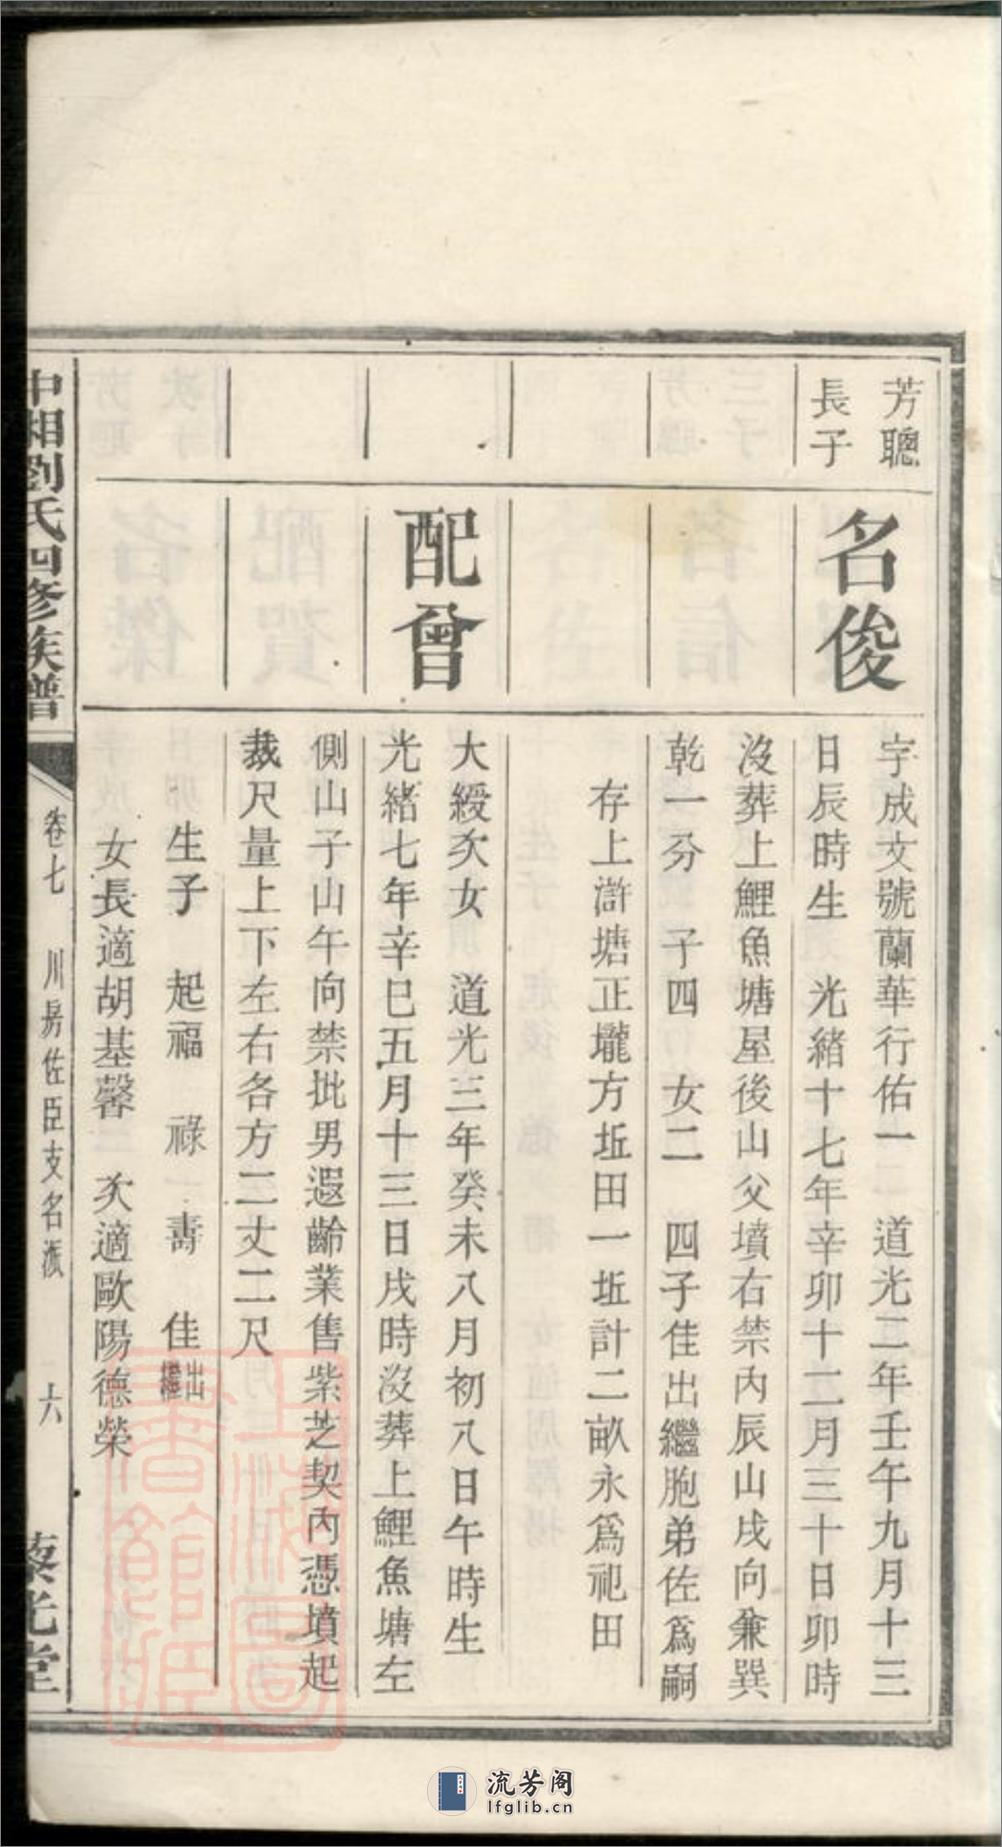 芳聰
長子
名俊
字成文號蘭華行佑一　道光二年壬午九月十三
日辰時生　光緒十七年辛卯十二月三十日卯時
沒葬上鯉魚塘屋後山父墳右禁內辰山戌向兼巽
乾一分　子四　女二　四子佳出繼胞弟佐爲嗣
存上滸塘正壠方坵田一坵計二畝永爲祀田
配曾
大綬次女　道光三年癸未八月初八日午時生
光緒七年辛巳五月十三日戌時沒葬上鯉魚塘左
側山子山午向禁批男遐齡業售紫芝契內憑墳起
裁尺量上下左右各方二丈二尺
生子　起福　祿　壽　佳出繼
女長適胡基馨　次適歐陽德榮
中湘劉氏四修族譜
卷七　川房佐臣支名派　六
藜光堂
上海圖書館藏
流芳阁
lfglib.cn